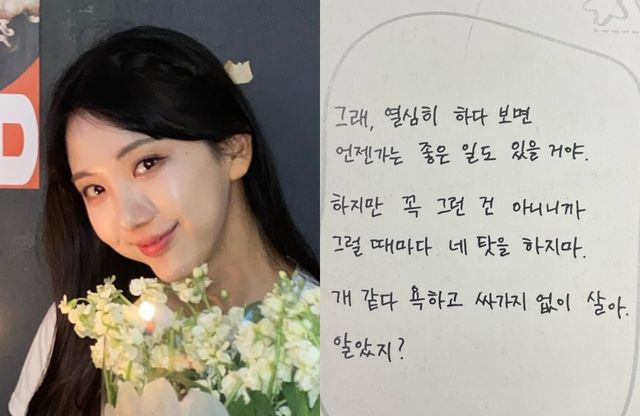 D
그래, 열심히 하다 보면
언젠가는 좋은 일도 있을 거야.
하지만 꼭 그런 건 아니니까
그럴 때마다 네 탓을 하지마.
개 같다 욕하고 싸가지 없이 살아.
알았지?